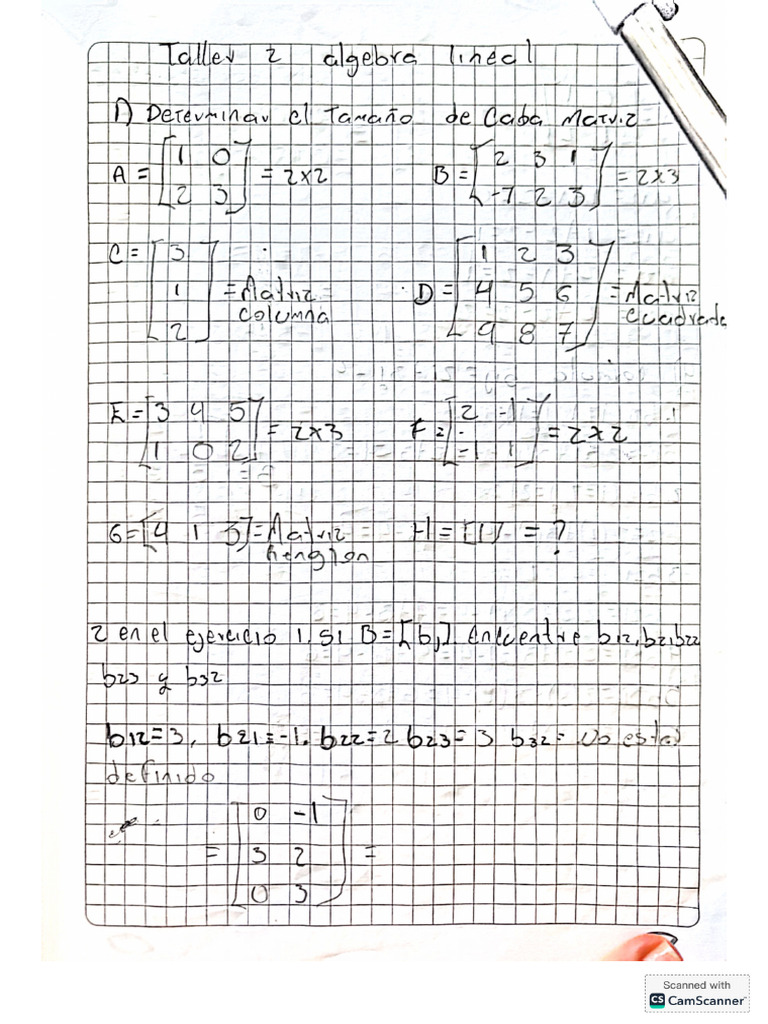 Taller 2 algebra lineal
1) Determinar el Tamaño de Caba Matriz
A = [1 0
2 3] = 2x2
B = [2 3 1
-7 2 3] = 2x3
C = [3
1
2] = Matriz
columna
D = [1 2 3
4 5 6
9 8 7] = Matriz
cuadrada
E = [3 4 5
1 0 2] = 2x3
F = [2 -1
-1 1] = 2x2
G = [4 1 3] = Matriz
Renglon
H = [1] = ?
2 en el ejercicio 1, si B = [bij]. Encuentre b12, b21 b22
b23 y b32
b12 = 3, b21 = -1. b22 = 2 b23 = 3 b32 = No esta
definido
= [0 -1
3 2
0 3] =
Scanned with
CS CamScanner